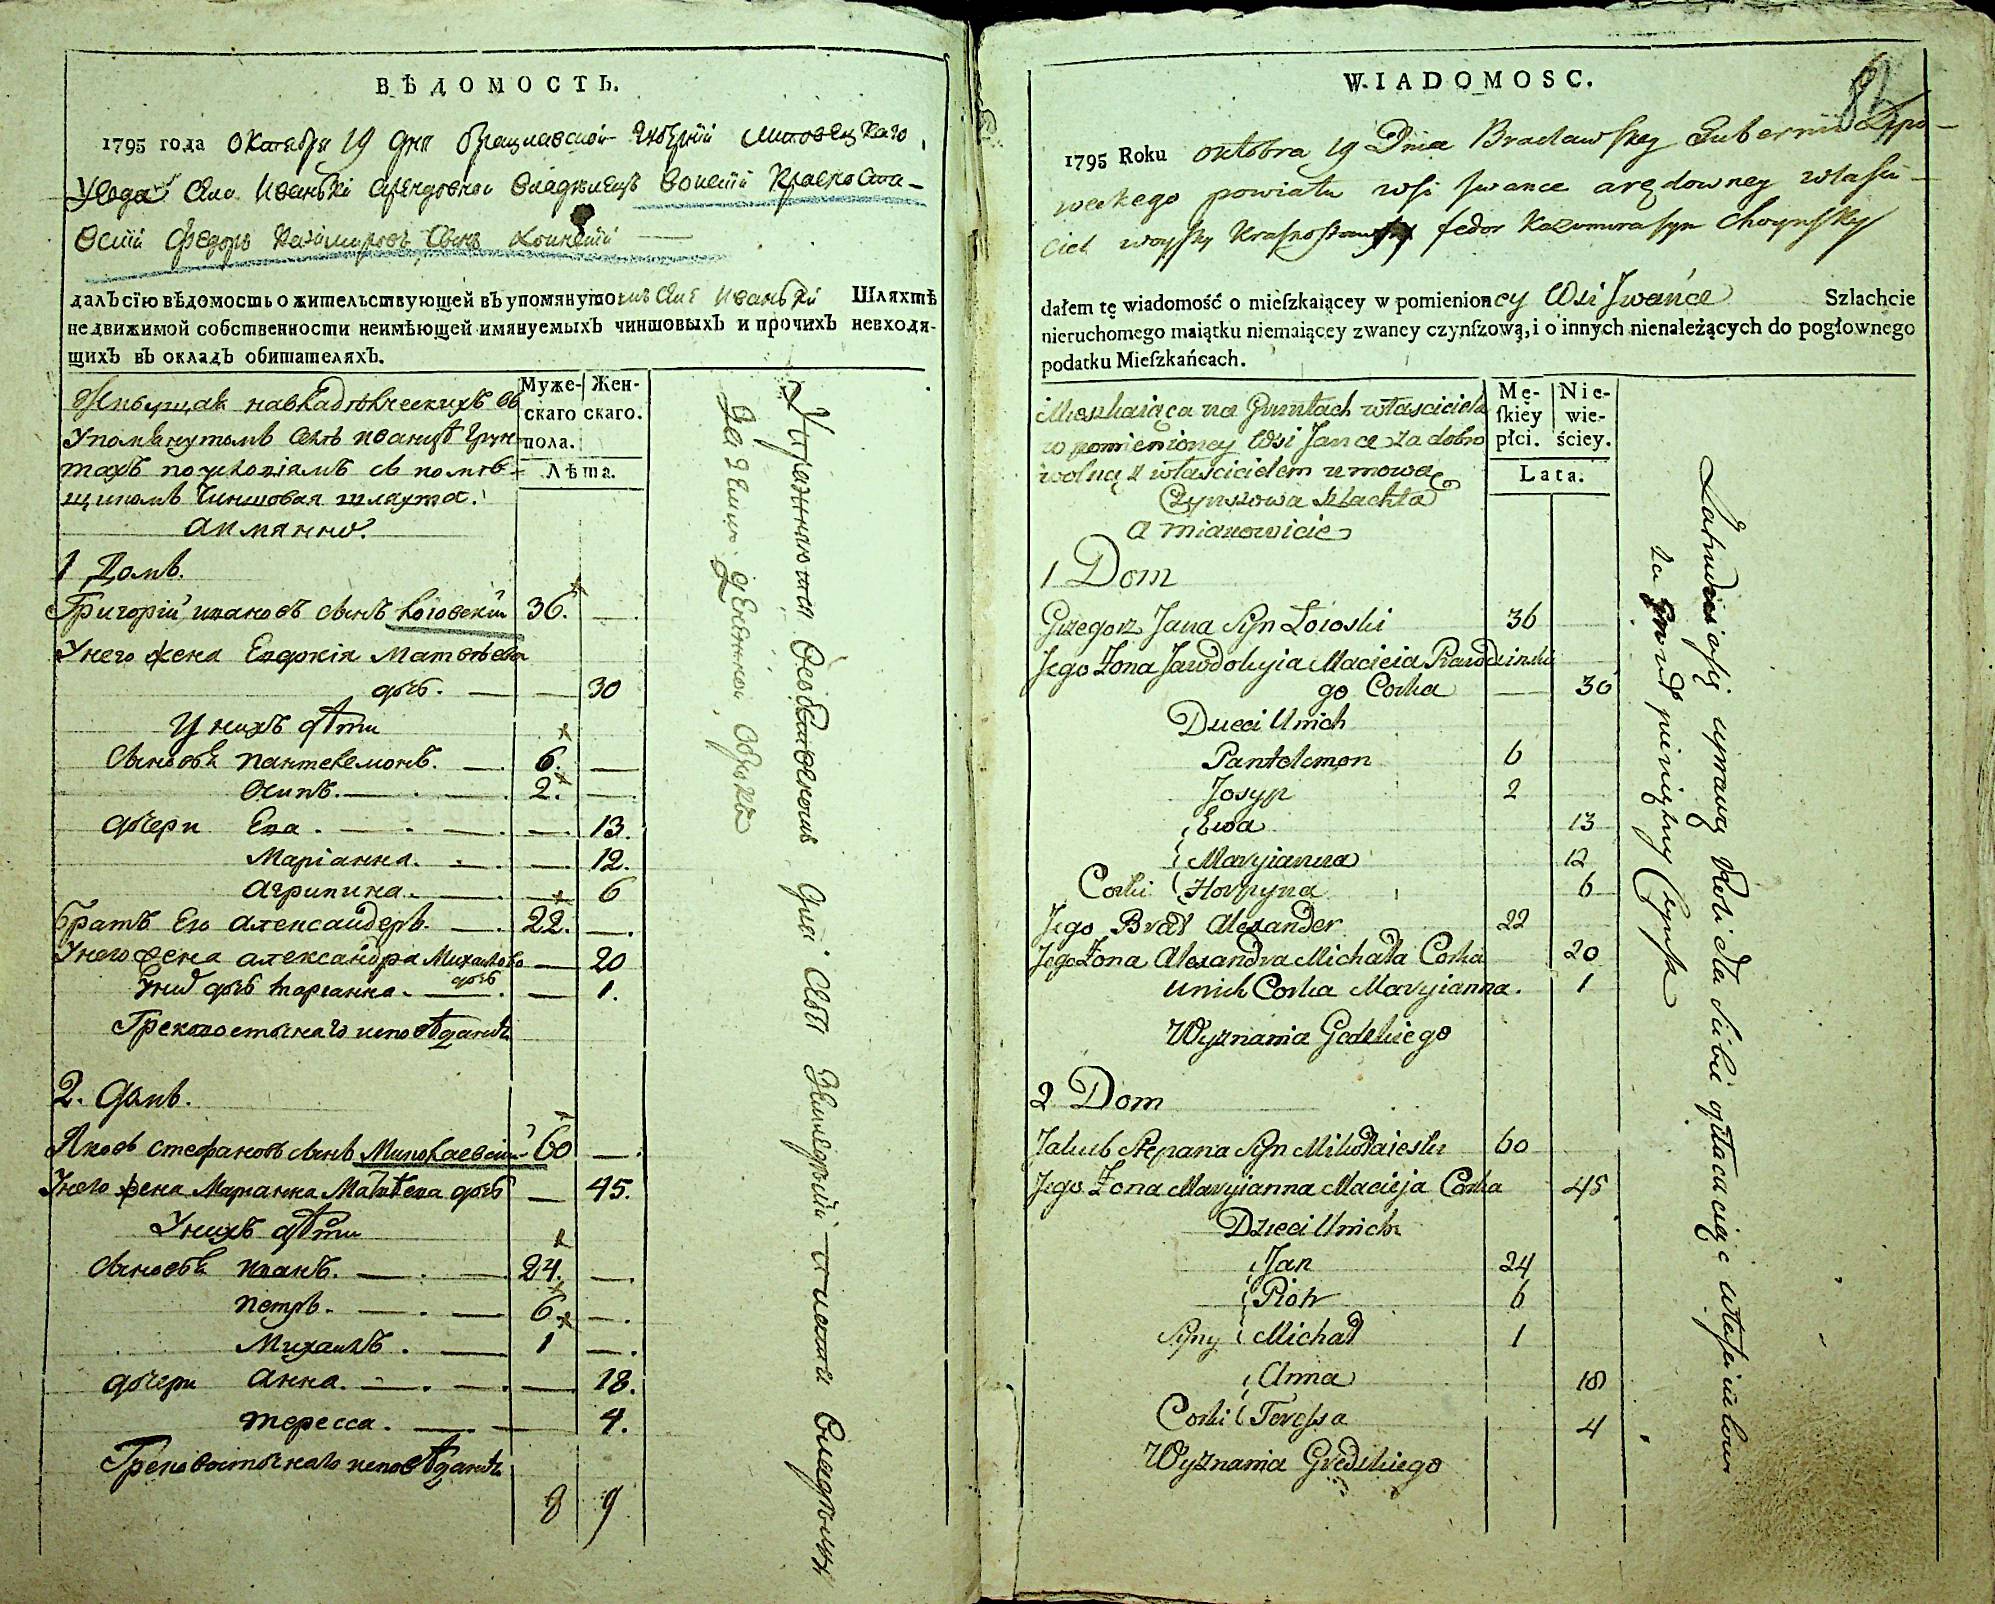 ВѢДОМОСТЬ.
1795 года октября 19 дня Брацлавской губернїи Липовецкаго
уезда села Иваньки арендовной владѣлецъ войскїй Красноста-
вскїй Федоръ Казимировъ сынъ Хоинскїй
далъ сїю вѣдомость о жительствующей въ упомянутомъ селе Иваньки Шляхтѣ
недвижимой собственности неимѣющей имянуемыхъ чиншовыхъ и прочихъ невходя-
щихъ въ окладъ обитателяхъ.
Муже- Жен-
скаго скаго.
пола.
Лѣта.
Живущая на владѣлческихъ въ
упомянутомъ селѣ Иванцѣ грун
тахъ по условіямъ съ помѣ-
щикомъ чиншовая шляхта.
а имянно.
1 Домъ.
Григорій Ивановъ сынъ 36.
У него жена Евдокія Матвѣева
дочь. 30
У нихъ дѣти
сыновья Пантелемонъ. 6.
Осипъ. 2.
дочери Ева. 13.
Маріанна. 12.
Агрипина. 6
братъ его Александеръ. 22.
У него жена Александра Михайлова дочь 20
У них дочь Маріанна. 1.
Грековосточнаго исповѣданія
2. Домъ.
Яковъ Стефановъ сынъ Миколаевскій 60
У него жена Маріанна Матвѣева дочь 45.
У нихъ дѣти
сыновья Иванъ. 24.
Петръ. 6.
Михаилъ. 1
дочери Анна. 18.
Тересса. 4.
Грековосточнаго исповѣданія
8 9
Упражняются особственномъ для себя земледѣлїи владѣлцу
за землю денежной
WIADOMOSC.
1795 Roku oktobra 19 Dnia Bracławskey Gubernii Lipo-
weckego powiatu wsi Iwance arędowney własci-
ciel woyski Krasnostawsky fedor Kazimira syn Choynsky
dałem tę wiadomość o mieſzkaiącey w pomienioney Wsi Iwańce Szlachcie
nieruchomego maiątku niemaiącey zwaney czynſzową, i o innych nienależących do pogłownego
podatku Mieſzkańcach.
Mę- Nie-
ſkiéy wie-
płci. ściey.
Lata.
Mieszkaiąca na Gruntach własciciela
w pomienioney Wsi Jance za dobro
wolną z włascicielem umową
Czynszowa Szlachta
a mianowicie
1 Dom
Grzegorz Jana Syn 36
Jego Żona Jawdokyia Macieia
go Corka 30
Dzieci Unich
Pantelemon 6
Josyp 2
Ewa 13
Maryianna 12
Corki Horpyna 6
Jego Brat Alexander 22
Jego Żona Alexandra Michała Corka 20
Unich Corka Maryianna. 1
Wyznania Gredskiego
2 Dom
Jakub Stepana Syn Mikołaieski 60
Jego Żona Maryianna Macieja Corka 45
Dzieci Unich
Jan 24
Piotr 6
Syny Michał 1
Anna 18
Corki Teressa 4
Wyznania Gredskiego
Zatrudnia się uprawą Roli dla siebie opłacaiąc włascicielowi
za Grunt pieniężny Czynsz